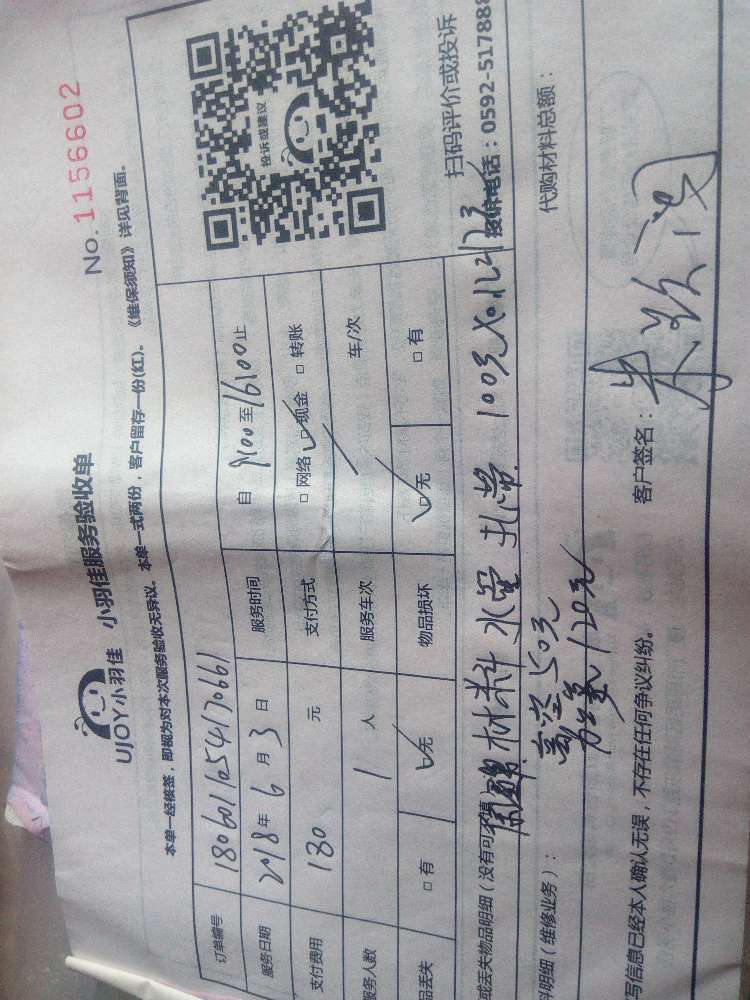 No. 1156602
UJOY小羽佳 小羽佳服务验收单
本单一经核签，即视为对本次服务验收无异议。本单一式两份，客户留存一份(红)。《维保须知》详见背面。
订单编号 180601105417061
服务日期 2018年6月3日 服务时间 自 9:00至16:00止
支付费用 130 元 支付方式 □网络 □现金 □转账
服务人数 1 人 服务车次 车/次
品丢失 □有 □无 物品损坏 □无 □有
投诉或建议
扫码评价或投诉
投诉电话：0592-517888
或丢失物品明细（没有可不填
材料 100元X0.12
料明细（维修业务）： 50元 代购材料总额：
加氟120元
写信息已经本人确认无误，不存在任何争议纠纷。 客户签名：